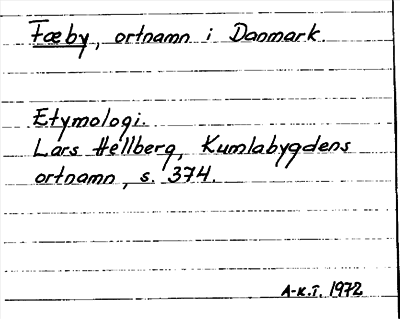 Fæby, ortnamn i Danmark.
Etymologi.
Lars Hellberg, Kumlabygdens
ortnamn, s. 374.
A-K.T. 1972